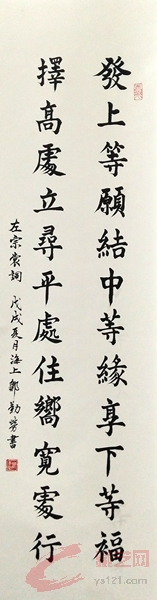 發上等願結中等緣享下等福
擇高處立尋平處住嚮寬處行
左宗棠詞 戊戌夏月海上鄭勤勞書
ys121.com